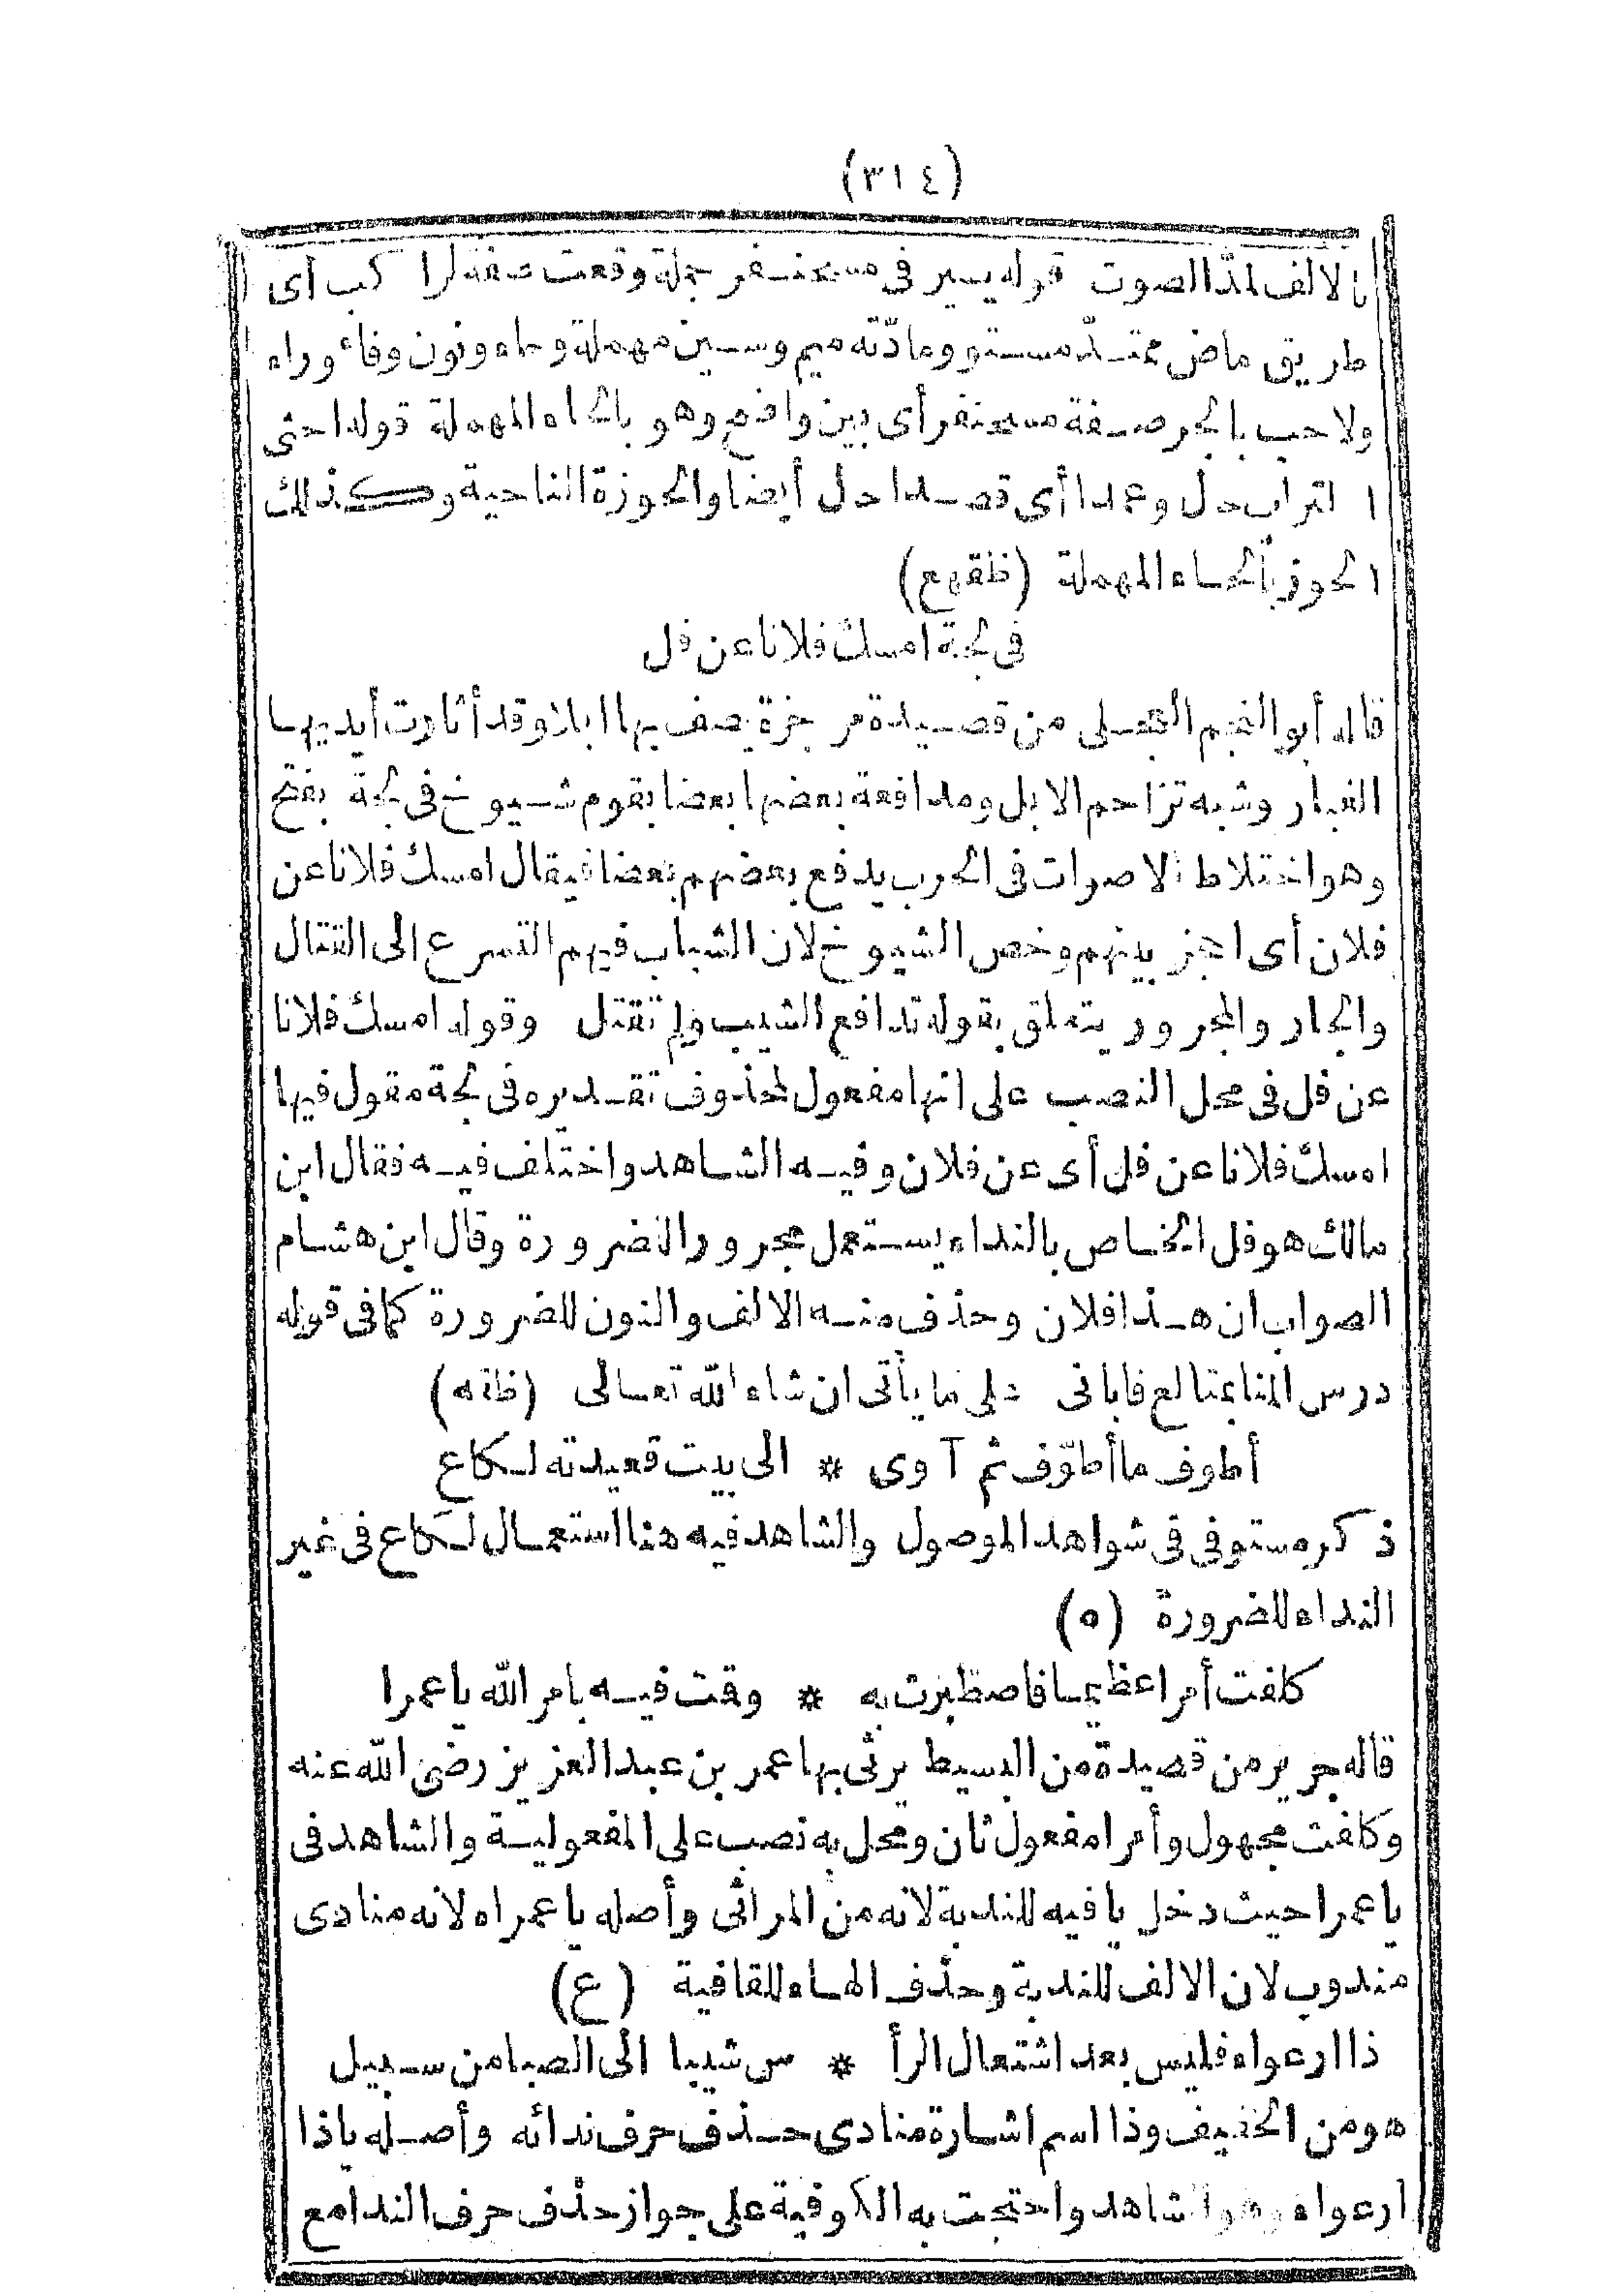 (٣١٤)
بالالف لمدّ الصوت قوله يسير فى مسحنفر جملة وقعت صفة لراكب أى
طريق ماض ممتدّ مستو ومادّته ميم وسين مهملة وحاء ونون وفاء وراء
ولاحب بالجر صفة مسحنفر أى بين واضح وهو بالحاء المهملة قوله احثى
التراب حال وعمدا أى قصدا حال أيضا والحوزة الناحية وكذلك
الحوز بالحاء المهملة (ظقهع)
فى لجة امسك فلانا عن فل
قاله أبو النجم العجلى من قصيدة مرجزة يصف بها ابلا وقد أثارت أيديها
الغبار وشبه تزاحم الابل ومدافعة بعضها بعضا بقوم شيوخ فى لجة بفتح
وهو اختلاط الاصوات فى الحرب يدفع بعضهم بعضا فيقال امسك فلانا عن
فلان أى احجز بينهم وخص الشيوخ لان الشباب فيهم التسرع الى القتال
والجار والمجرور يتعلق بقوله تدافع الشيب ولم تقتل وقوله امسك فلانا
عن فل فى محل النصب على انها مفعول لمحذوف تقديره فى لجة مقول فيها
امسك فلانا عن فل أى عن فلان وفيه الشاهد واختلف فيه فقال ابن
مالك هو فل الخاص بالنداء يستعمل مجرورا لضرورة وقال ابن هشام
الصواب ان هذا فلان وحذف منه الالف والنون للضرورة كما فى قوله
درس المنا بمتالع فابانى على ما يأتى ان شاء الله تعالى (ظقه)
أطوف ما أطوّف ثم آوى * الى بيت قعيدته لكاع
ذكر مستوفى فى شواهد الموصول والشاهد فيه هنا استعمال لكاع فى غير
النداء للضرورة (ه)
كلفت أمرا عظيما فاصطبرت به * وقت فيه بامر الله يا عمرا
قاله جرير من قصيدة من البسيط يرثى بها عمر بن عبد العزيز رضى الله عنه
وكلفت مجهول وأمرا مفعول ثان ومحل به نصب على المفعولية والشاهد فى
يا عمرا حيث دخل يا فيه للندبة لانه من المراثى وأصله يا عمراه لانه منادى
مندوب لان الالف للندبة وحذف الهاء للقافية (ع)
ذا ارعواء فليس بعد اشتعال الرأ * س شيبا الى الصبا من سبيل
هو من الخفيف وذا اسم اشارة منادى حذف حرف ندائه وأصله ياذا
ارعواء وهو الشاهد واحتجت به الكوفية على جواز حذف حرف الندا مع